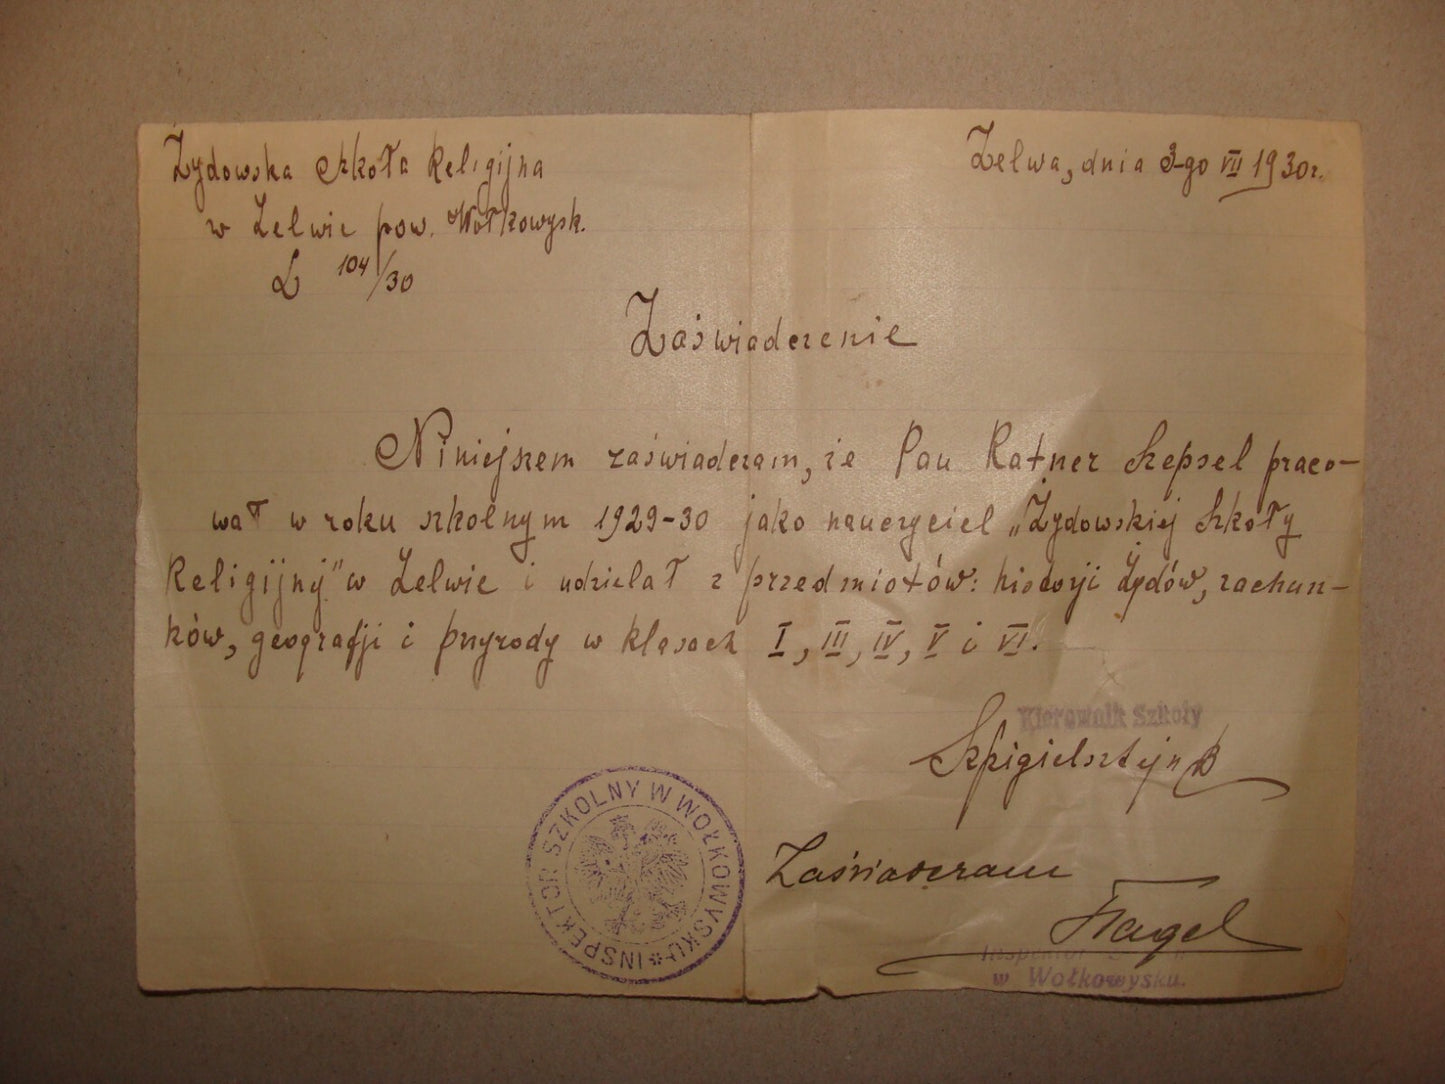 Żydowska Szkoła Religijna
w Zelwie pow. Wołkowysk.
L 104/30
Zelwa, dnia 3-go VII 1930r.
Zaświadczenie
Niniejszem zaświadczam, że Pan Ratner Szepsel praco-
wał w roku szkolnym 1929-30 jako nauczyciel „Żydowskiej Szkoły
Religijnj" w Zelwie i udzielał z przedmiotów: historji Żydów, rachun-
ków, geografji i przyrody w klasach I, III, IV, V i VI.
Kierownik Szkoły
Szpigielsztejn B
INSPEKTOR SZKOLNY W WOŁKOWYSKU
Zaświadczam
Inspektor
w Wołkowysku.